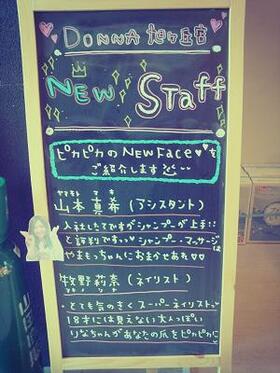 DONNA 旭ヶ丘店
NEW Staff
ピカピカのNEW Faceを
ご紹介します
ヤマモト マキ
山本 真希(アシスタント)
入社したてですがシャンプーが上手!!
と評判ですっ シャンプー・マッサージは
やまもっちゃんにおまかせあれ
牧野莉奈(ネイリスト)
マキノ リナ
とても気のきくスーパーネイリスト
18才には見えない大人っぽい
りなちゃんがあなたの爪をピカピカに